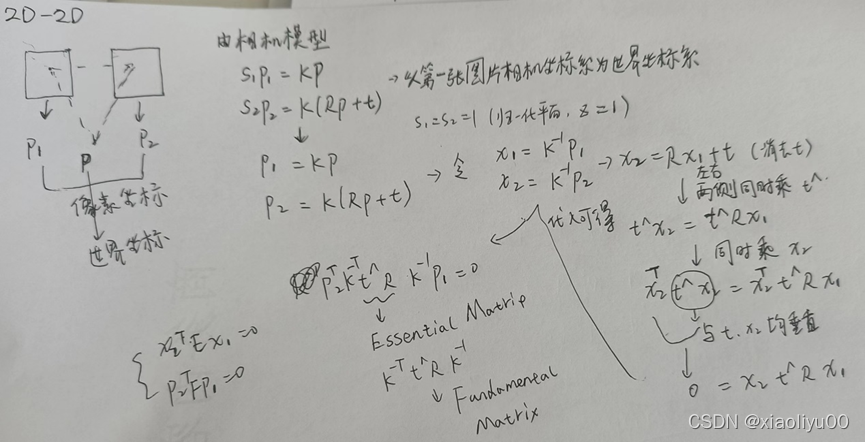 2D-2D
P₁
P
P₂
像素坐标
世界坐标
由相机模型
S₁P₁ = KP
S₂P₂ = K(RP+t)
→以第一张图片相机坐标系为世界坐标系
S₁=S₂=1 (归一化平面, z=1)
P₁ = KP
P₂ = K(RP+t)
→ 令
x₁ = K⁻¹P₁
x₂ = K⁻¹P₂
→ x₂ = Rx₁+t (消去t)
左右
↓ 两侧同时乘 t^
t^x₂ = t^Rx₁
↓ 同时乘 x₂
x₂ᵀ t^x₂ = x₂ᵀ t^R x₁
与 t. x₂ 均垂直
0 = x₂ t^ R x₁
代入可得
P₂ᵀK⁻ᵀt^R K⁻¹P₁=0
Essential Matrix
K⁻ᵀ t^R K⁻¹
↓ Fundamental
Matrix
x₂ᵀEx₁=0
P₂ᵀFP₁=0
CSDN @xiaoliyu00